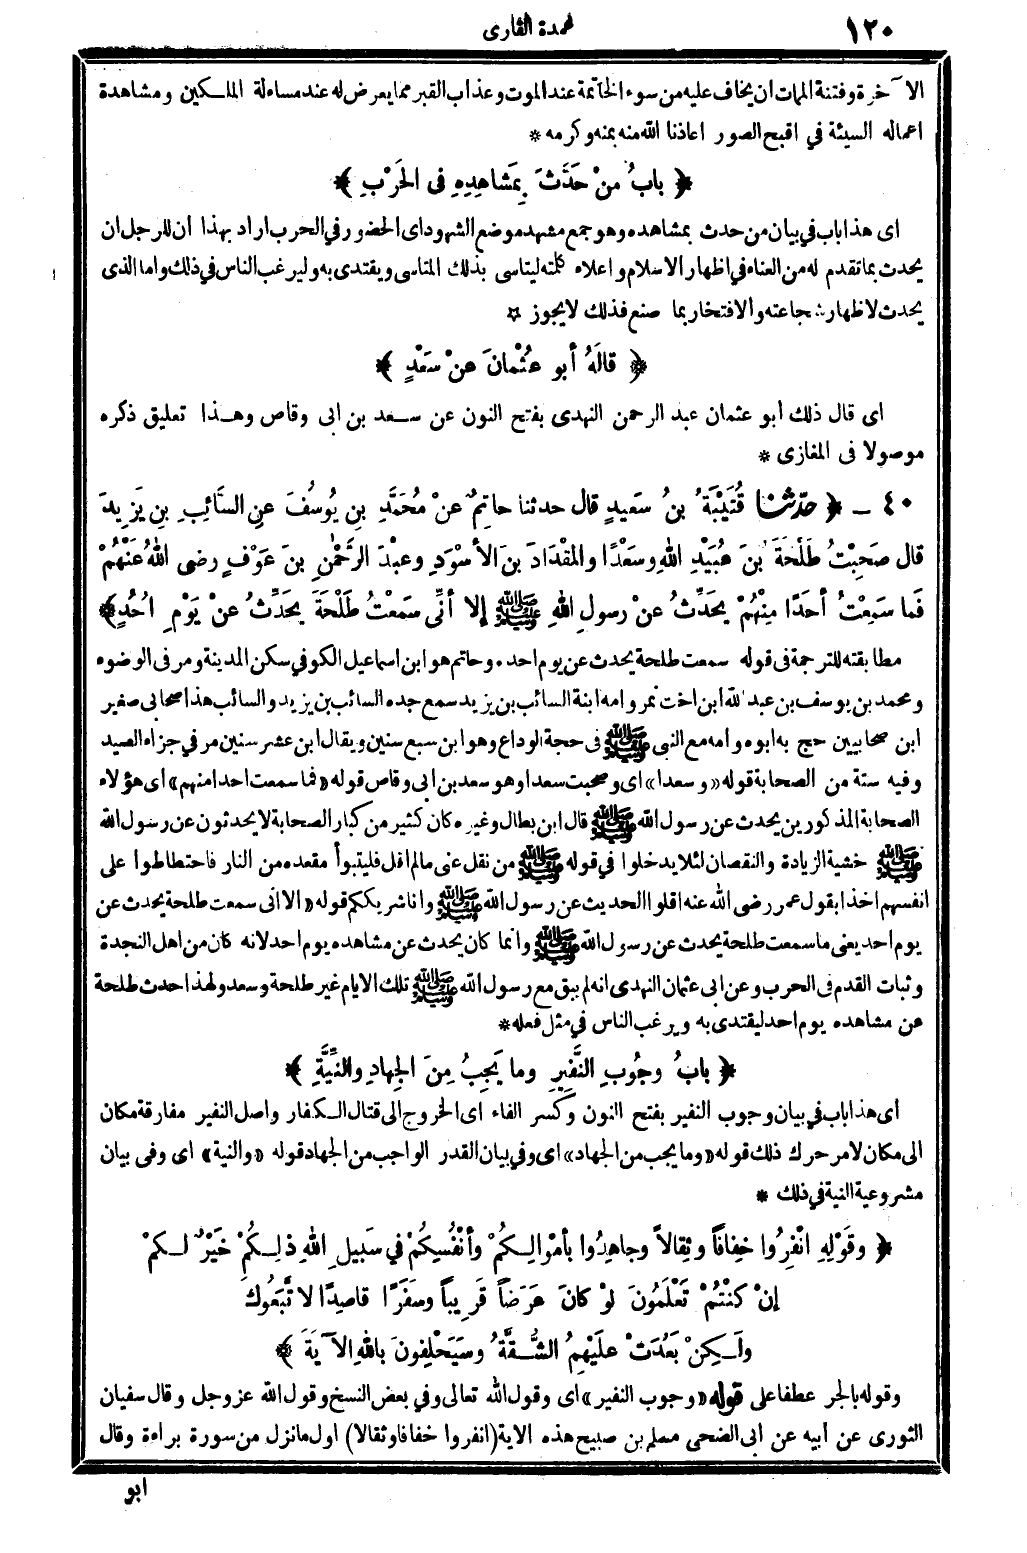 ١٢٠
عمدة القارى
الآخرة وفتنة الممات ان يخاف عليه من سوء الخاتمة عند الموت وعذاب القبر مما يعرض له عند مساءلة الملكين ومشاهدة
اعماله السيئة في اقبح الصور اعاذنا الله منه بمنه وكرمه *
﴿ بابُ منْ حَدَّثَ بِمَشاهِدِهِ فى الحَرْبِ ﴾
اى هذا باب في بيان من حدث بمشاهده وهو جمع مشهد موضع الشهود اى الحضور في الحرب اراد بهذا ان للرجل ان
يحدث بما تقدم له من العناء في اظهار الاسلام واعلاء كلمته ليتاسى بذلك المتاسى ويقتدى به وليرغب الناس في ذلك واما الذى
يحدث لاظهار شجاعته والافتخار بما صنع فذلك لا يجوز *
﴿ قالَهُ أبو عُثْمانَ عنْ سَعْدٍ ﴾
اى قال ذلك أبو عثمان عبد الرحمن النهدى بفتح النون عن سعد بن ابى وقاص وهذا تعليق ذكره
موصولا فى المغازى *
٤٠ - ﴿ حدّثنا قُتَيْبَةُ بنُ سَعيدٍ قال حدثنا حاتِمٌ عنْ مُحَمَّدِ بنِ يُوسُفَ عنِ السَّائِبِ بنِ يَزِيدَ
قال صَحِبْتُ طَلْحَةَ بنَ عُبَيْدِ اللهِ وسَعْدًا والمِقْدَادَ بنَ الأسْوَدِ وعبْدَ الرَّحْمٰنِ بنَ عَوْفٍ رضى اللهُ عَنْهُمْ
فَما سَمِعْتُ أحَدًا مِنْهُمْ يحَدِّثُ عنْ رسولِ اللهِ ﷺ إلا أنِّى سَمعْتُ طَلْحَةَ يحَدِّثُ عنْ يَوْمِ اُحُدٍ ﴾
مطابقته للترجمة فى قوله سمعت طلحة يحدث عن يوم احد. وحاتم هو ابن اسماعيل الكوفي سكن المدينة ومر فى الوضوء
ومحمد بن يوسف بن عبد الله ابن اخت نمر وامه ابنة السائب بن يزيد سمع جده السائب بن يزيد والسائب هذا صحابى صغير
ابن صحابيين حج به ابوه وامه مع النبى ﷺ فى حجة الوداع وهو ابن سبع سنين ويقال ابن عشر سنين مر في جزاء الصيد
وفيه ستة من الصحابة قوله «وسعدا» اى وصحبت سعدا وهو سعد بن ابى وقاص قوله «فما سمعت احدا منهم» اى هؤلاء
الصحابة المذكورين يحدث عن رسول الله ﷺ قال ابن بطال وغيره كان كثير من كبار الصحابة لا يحدثون عن رسول الله
ﷺ خشية الزيادة والنقصان لئلا يدخلوا في قوله ﷺ من نقل عنى ما لم اقل فليتبوأ مقعده من النار فاحتطاطوا على
انفسهم اخذا بقول عمر رضى الله عنه اقلوا الحديث عن رسول الله ﷺ وانا شريككم قوله «الا انى سمعت طلحة يحدث عن
يوم احد يعنى ما سمعت طلحة يحدث عن رسول الله ﷺ وانما كان يحدث عن مشاهده يوم احد لانه كان من اهل النجدة
وثبات القدم فى الحرب وعن ابى عثمان النهدى انه لم يبق مع رسول الله ﷺ تلك الايام غير طلحة وسعد ولهذا حدث طلحة
عن مشاهده يوم احد ليقتدى به ويرغب الناس في مثل فعله *
﴿ بابُ وجُوبِ النَّفِيرِ وما يَجِبُ مِنَ الجِهادِ والنِّيَّةِ ﴾
اى هذا باب في بيان وجوب النفير بفتح النون وكسر الفاء اى الخروج الى قتال الكفار واصل النفير مفارقة مكان
الى مكان لامر حرك ذلك قوله «وما يجب من الجهاد» اى وفي بيان القدر الواجب من الجهاد قوله «والنية» اى وفى بيان
مشروعية النية في ذلك *
﴿ وقَوْلِهِ انْفِرُوا خِفافاً وثِقالاً وجاهِدُوا بأمْوالِكُمْ وأنْفُسِكُمْ في سَبِيلِ اللهِ ذلِكُمْ خَيْرٌ لكمْ
إنْ كنْتُمْ تَعْلَمُونَ لوْ كانَ عرَضاً قَرِيباً وسفَرًا قاصِدًا لاتَّبَعُوكَ
ولكِنْ بَعُدَتْ علَيْهِمُ الشُّقَّةُ وسيَحْلِفونَ باللهِ الآيَةَ ﴾
وقوله بالجر عطفا على قوله «وجوب النفير» اى وقول الله تعالى وفي بعض النسخ وقول الله عز وجل وقال سفيان
الثورى عن أبيه عن ابى الضحى مسلم بن صبيح هذه الاية (انفروا خفافا وثقالا) اول ما نزل من سورة براءة وقال
ابو